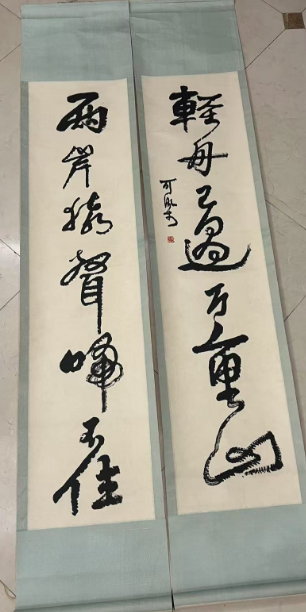 兩岸猿聲啼不住
輕舟已過万重山